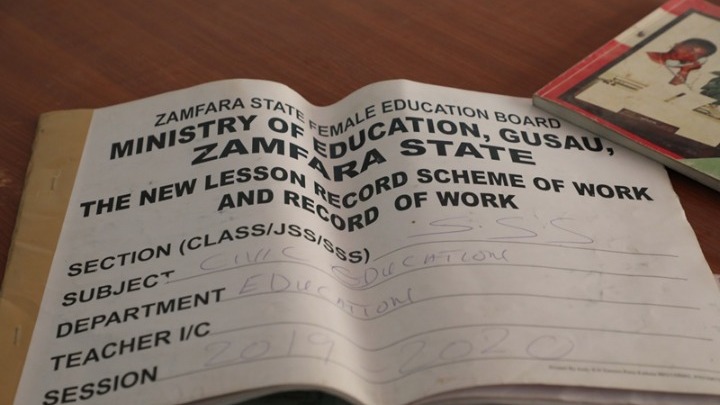 ZAMFARA STATE FEMALE EDUCATION BOARD
MINISTRY OF EDUCATION, GUSAU,
ZAMFARA STATE
THE NEW LESSON RECORD SCHEME OF WORK
AND RECORD OF WORK
SECTION (CLASS/JSS/SSS) S.S.S
SUBJECT CIVIC EDUCATION
DEPARTMENT EDUCATION
TEACHER I/C
SESSION 2019 2020